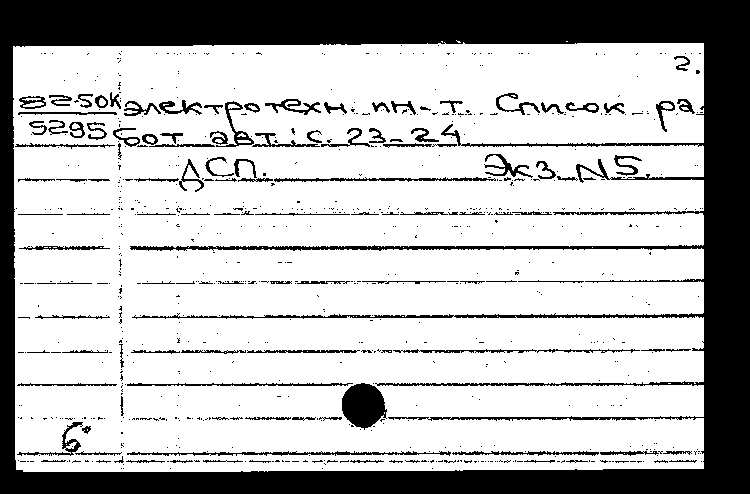 2.
82-50К электротехн. ин-т. Список ра-
5295 бот авт.: с. 23-24
ДСП. Экз. N5.
6°